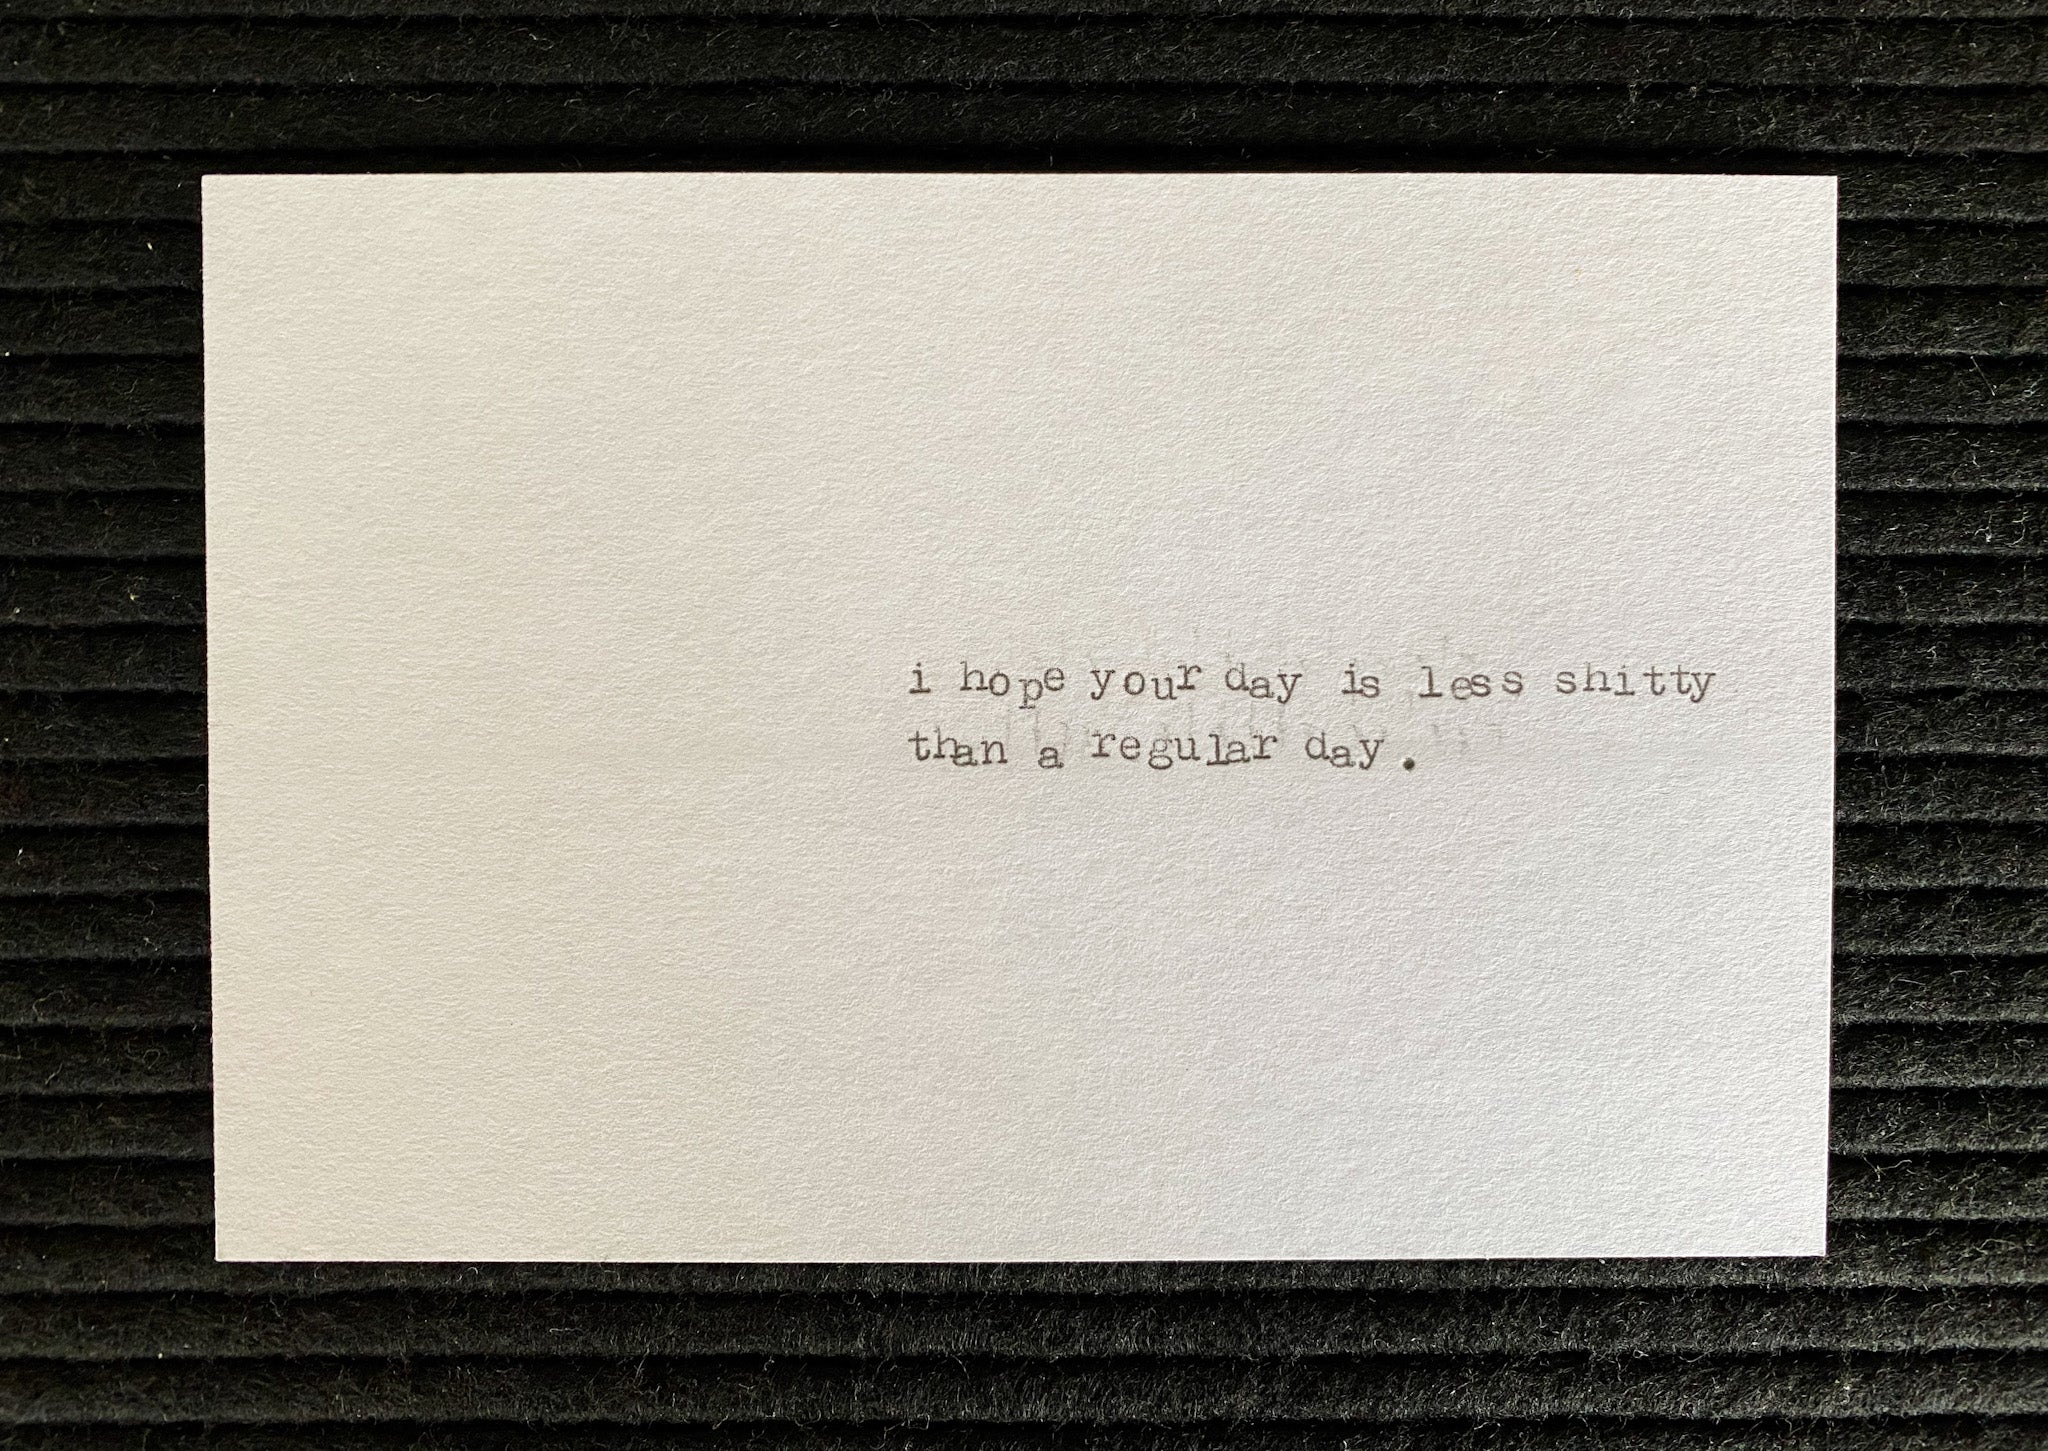 i hope your day is less shitty
than a regular day.